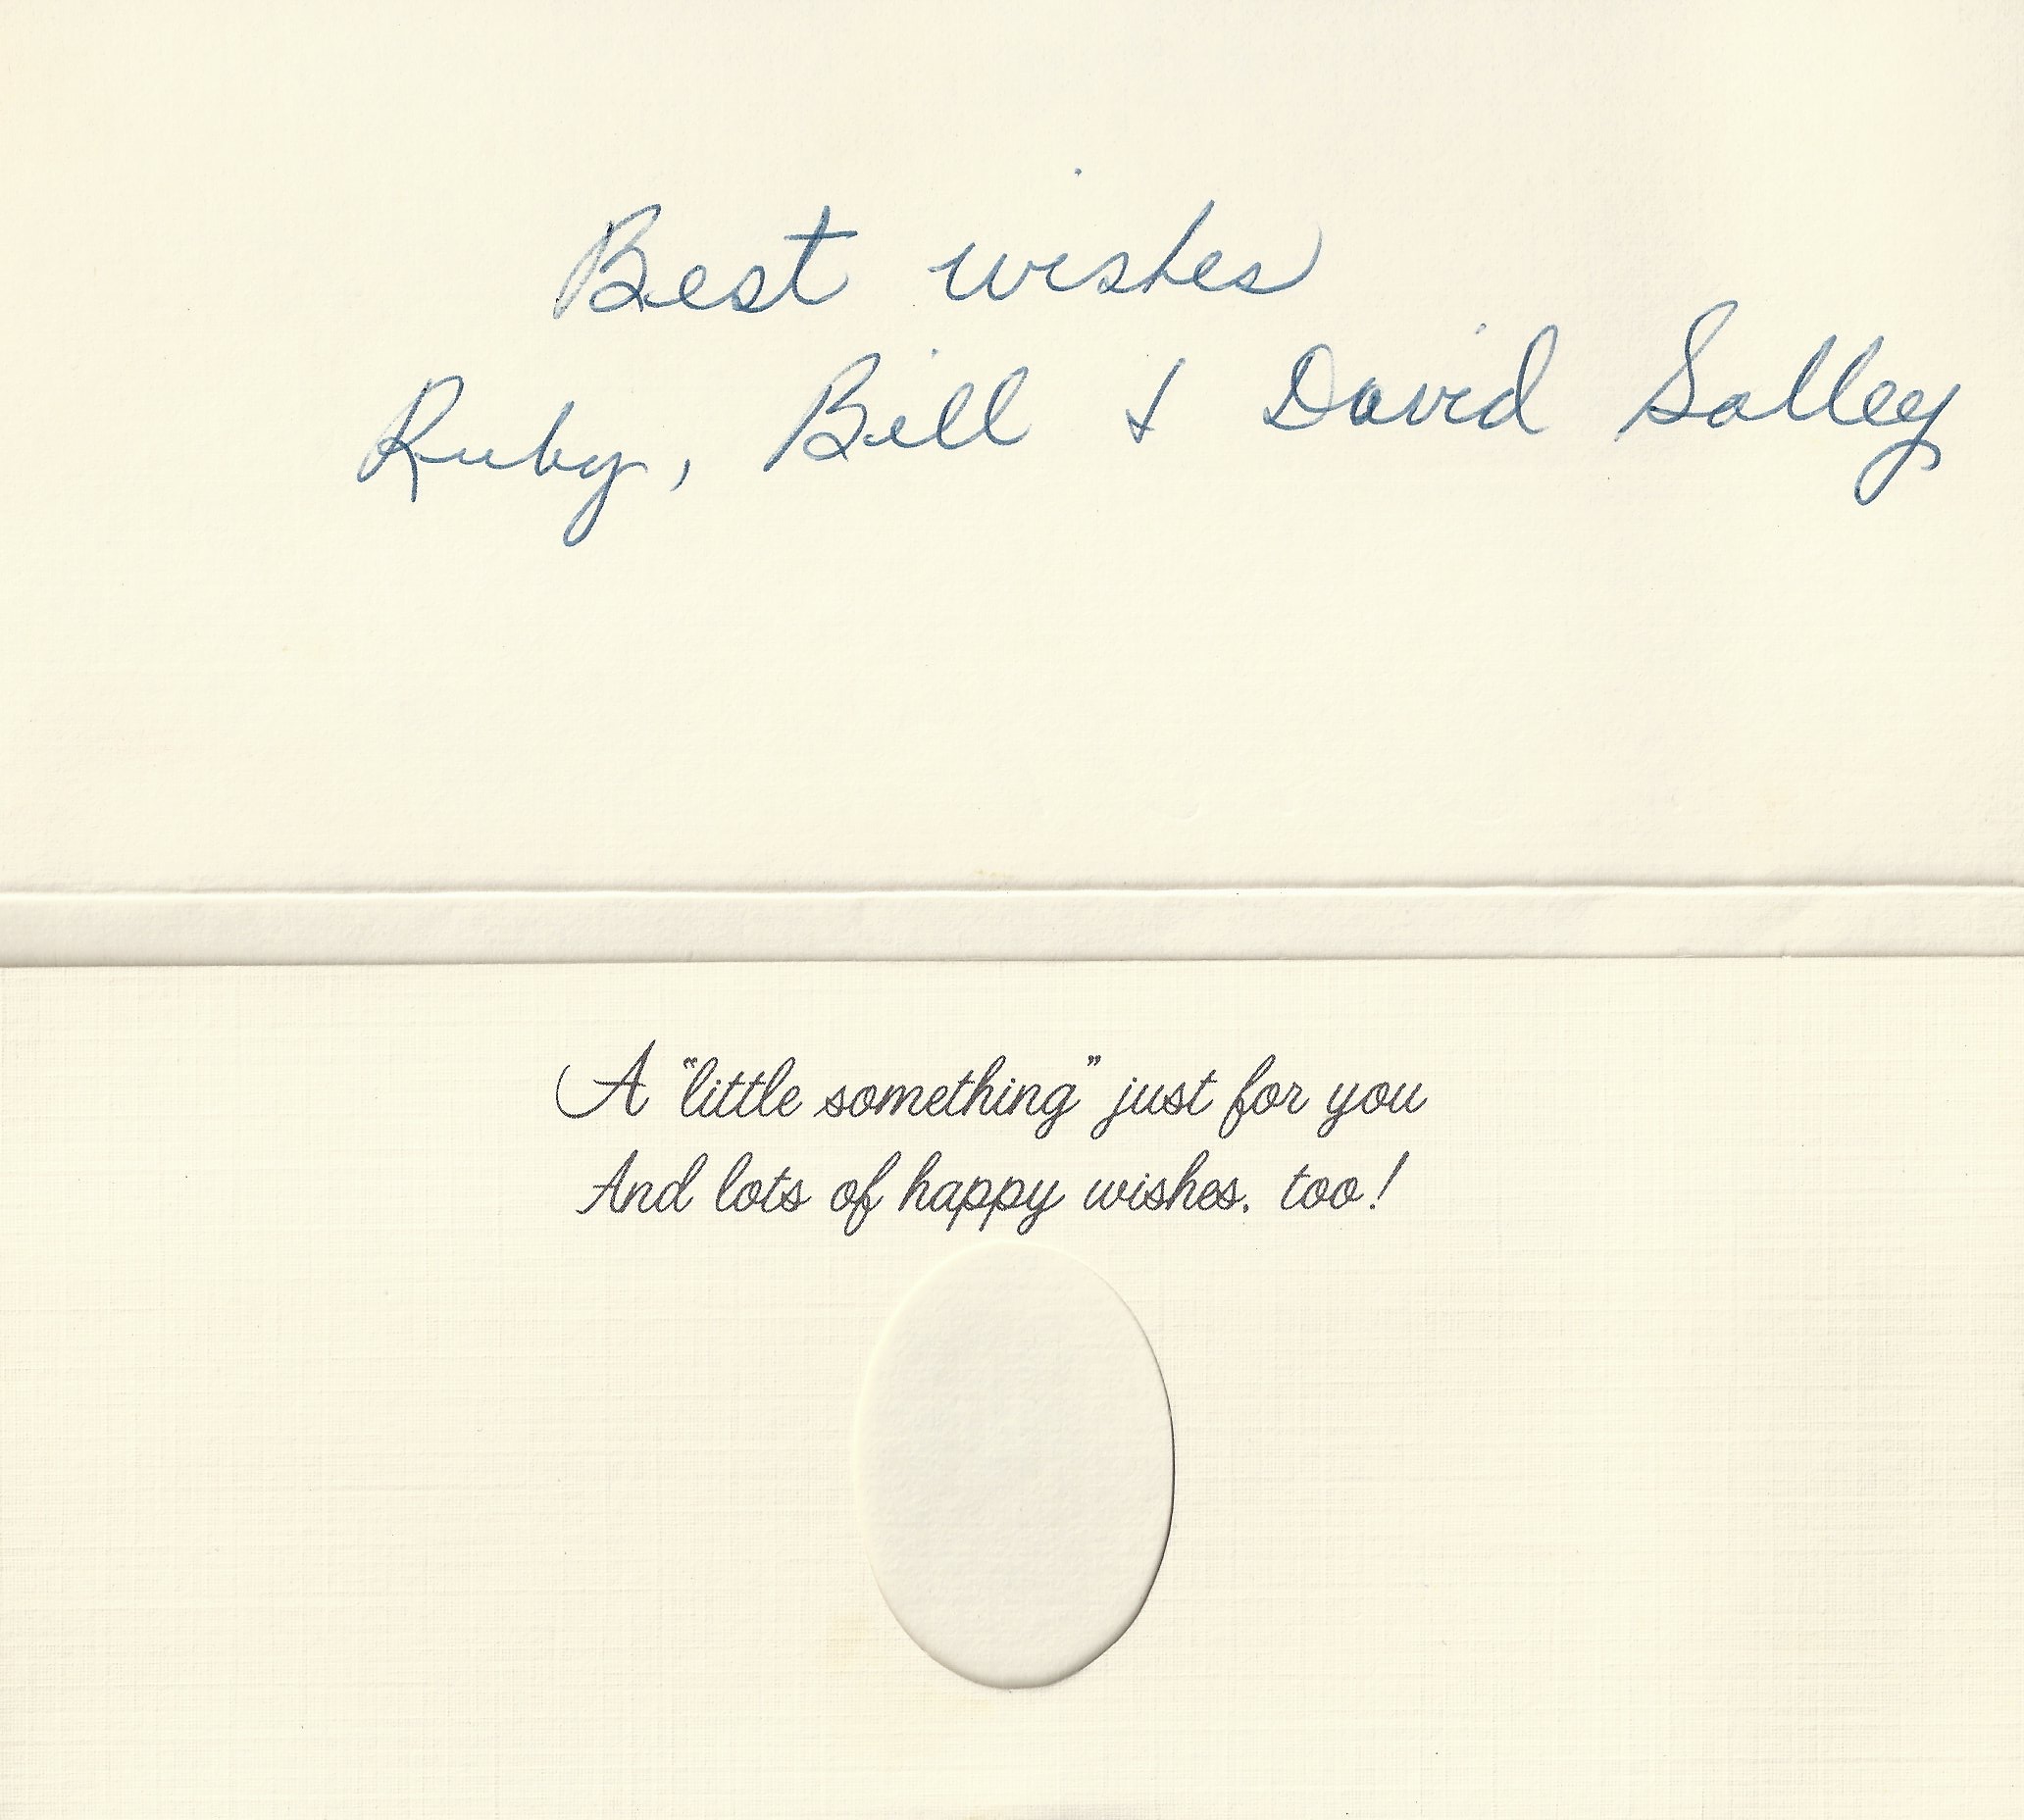 Best wishes
Ruby, Bill & David Salley
A "little something" just for you
And lots of happy wishes, too!